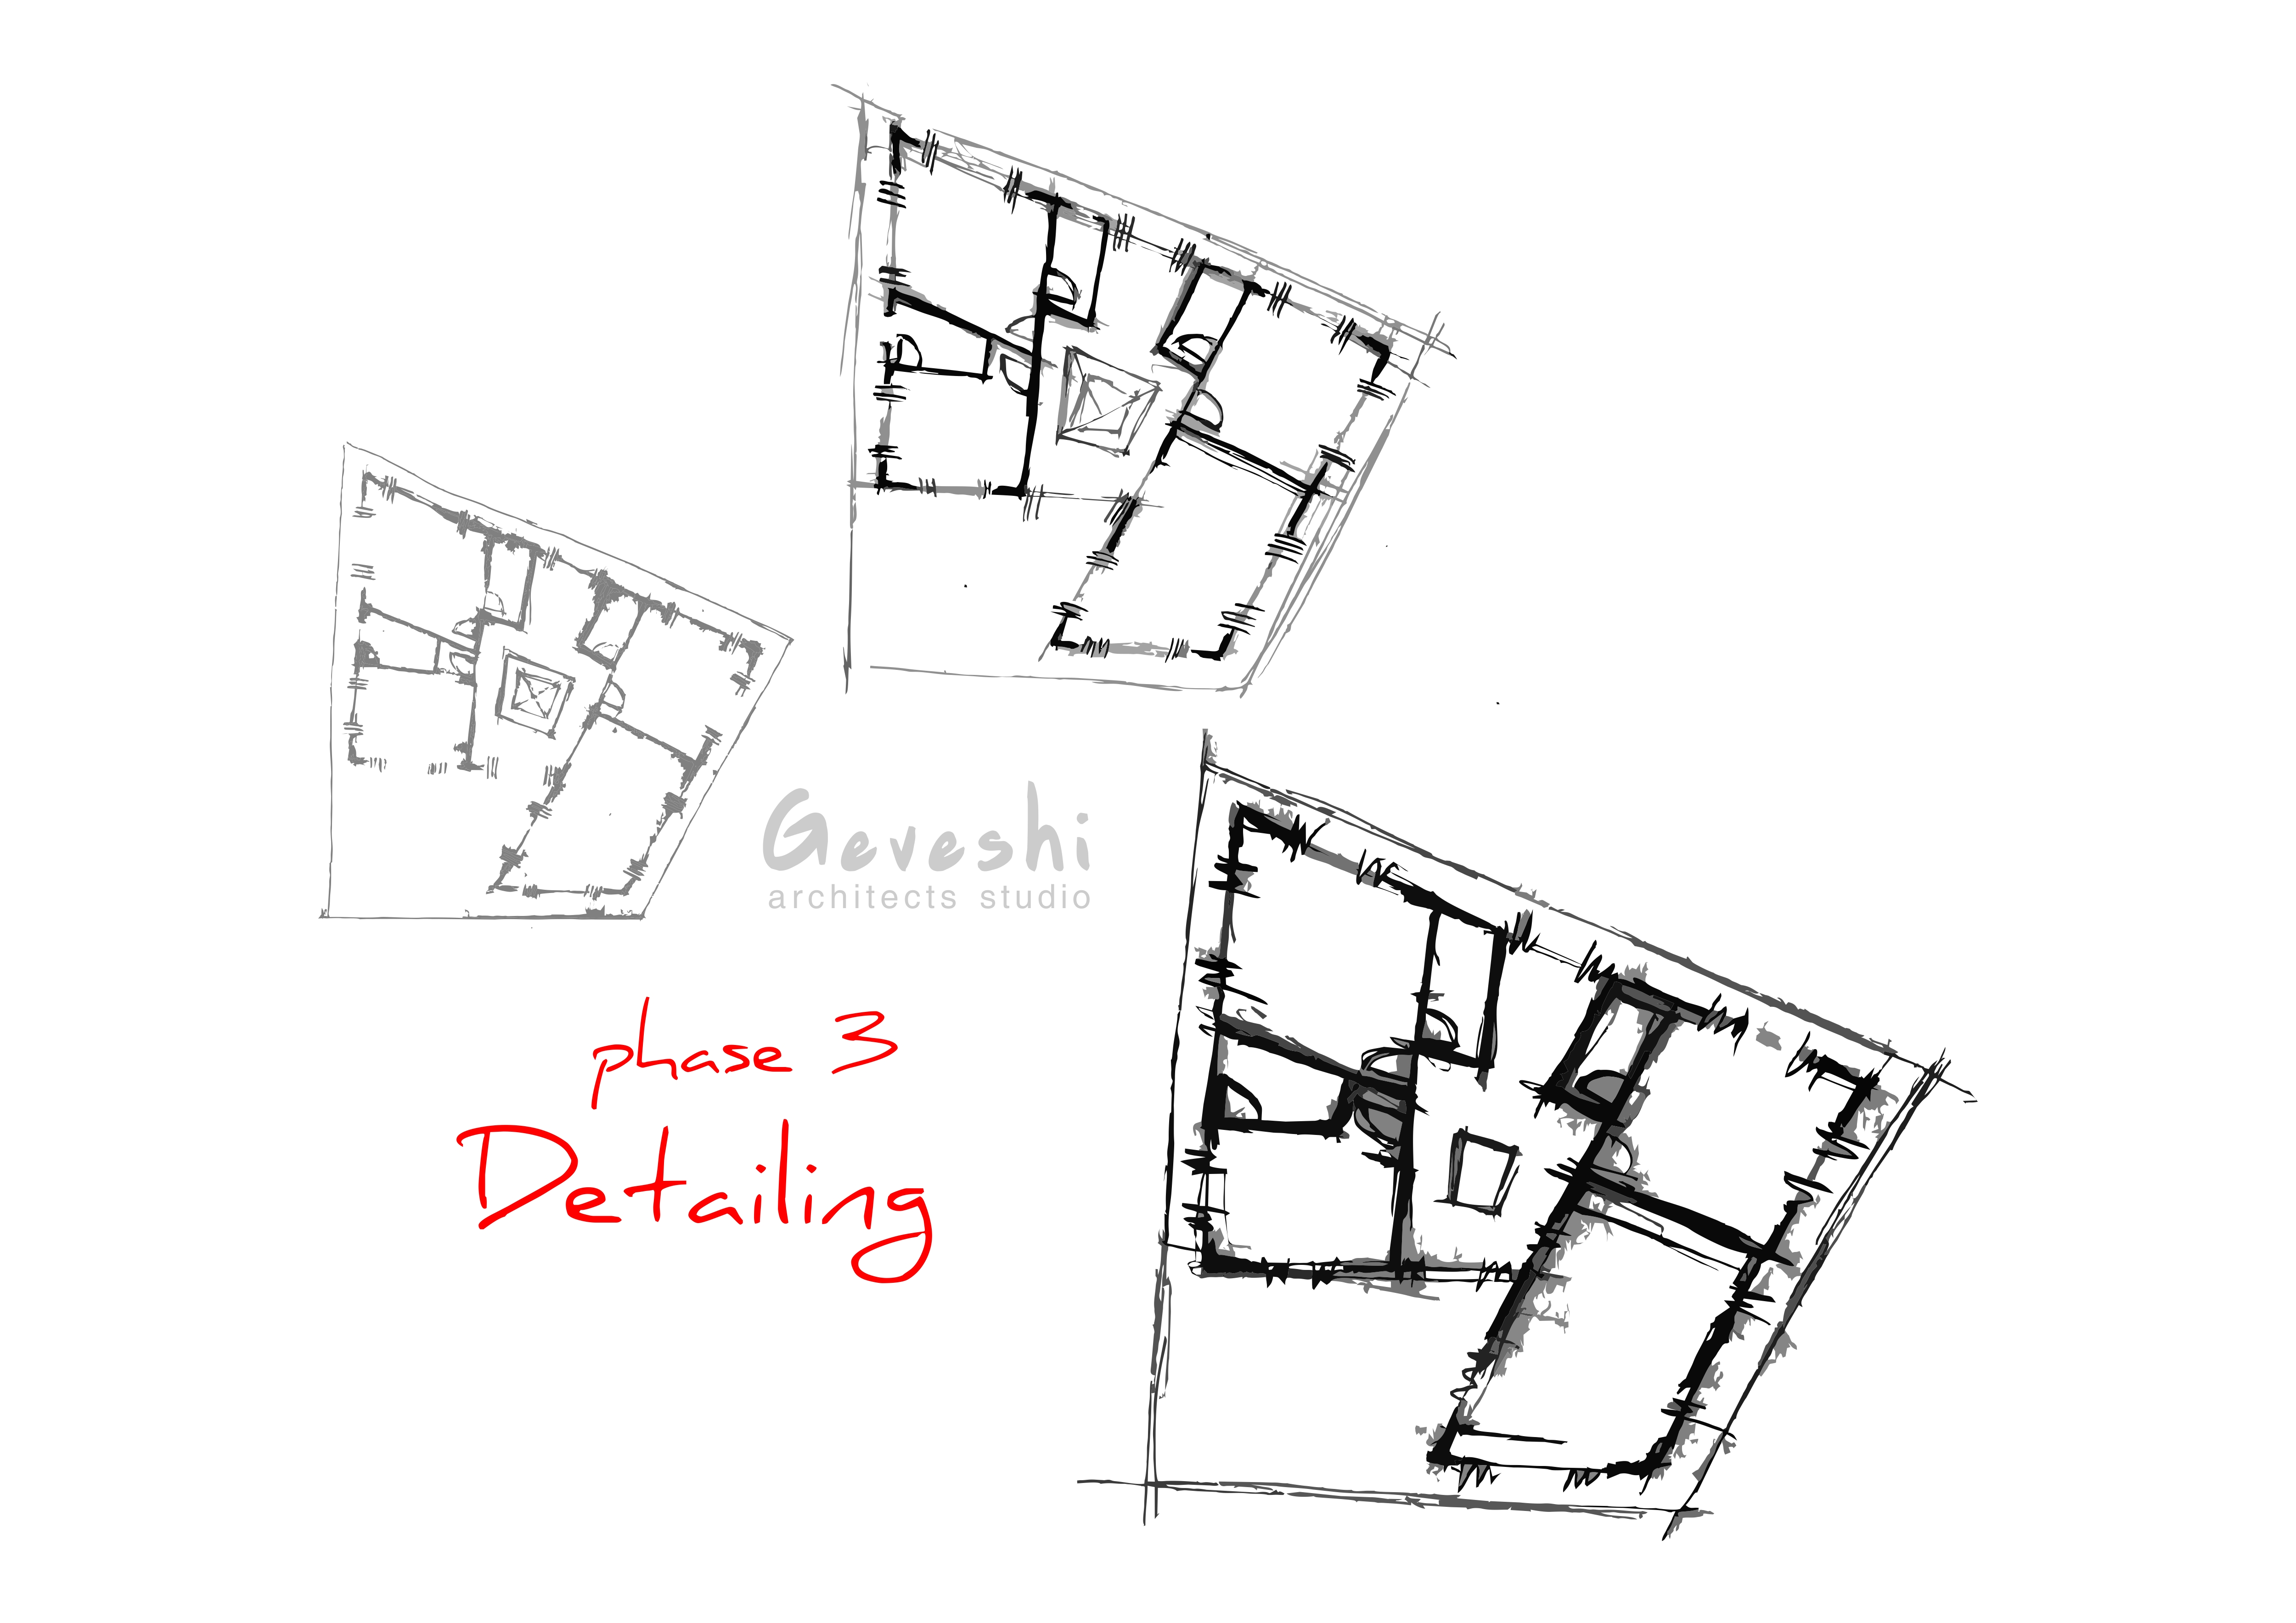 Geveshi
architects studio
phase 3
Detailing